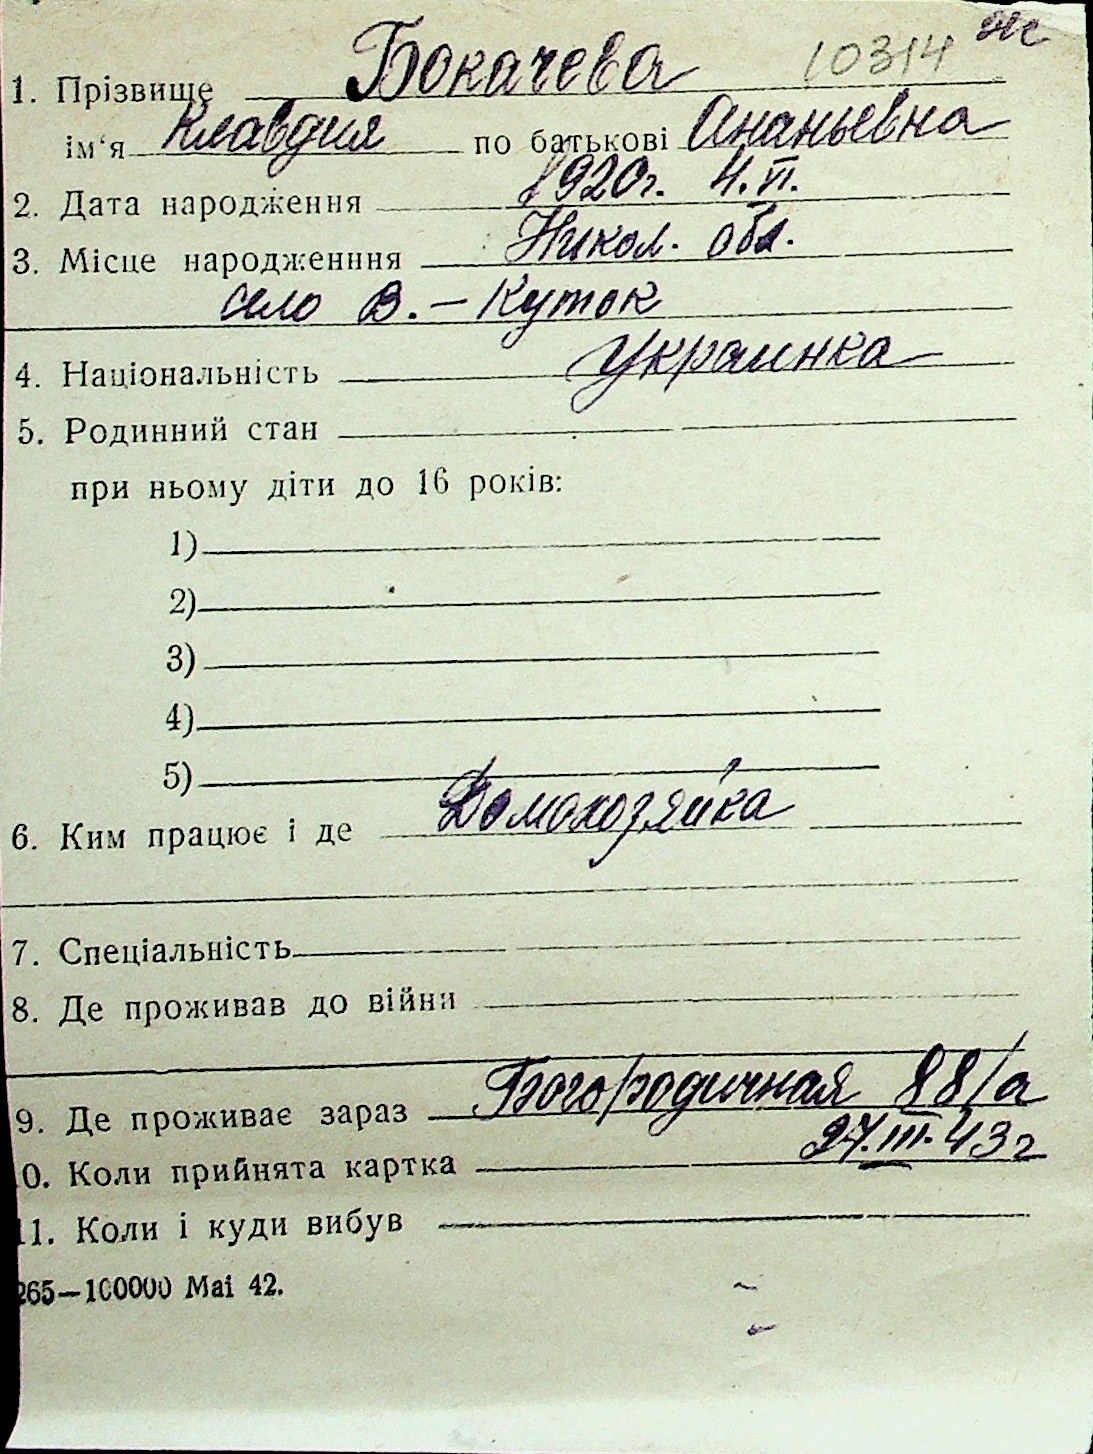 10314
1. Прізвище Бокачева
ім‘я Клавдия по батькові Ананьевна
2. Дата народження 1920г. 4.VI.
3. Місце народженння Никол. обл.
село В.-Куток
4. Національність Украинка
5. Родинний стан
при ньому діти до 16 років:
1)
2)
3)
4)
5)
6. Ким працює і де Домохозяйка
7. Спеціальність
8. Де проживав до війни
9. Де проживає зараз Богородичная 88/а
0. Коли прийнята картка 27.III.43г
11. Коли і куди вибув
265—100000 Mai 42.